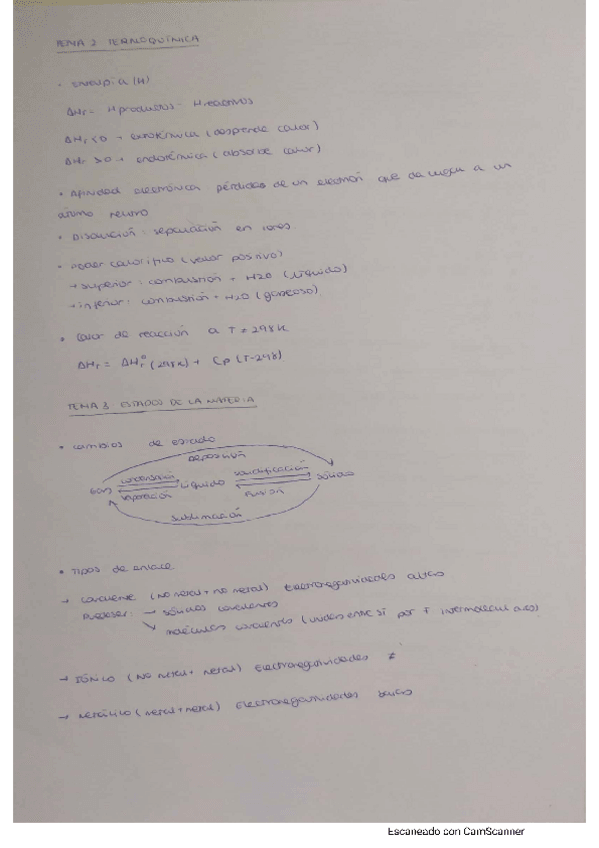 TEMA 2 TERMOQUÍMICA
• Entalpía (H)
ΔHr = Hproductos - Hreactivos
ΔHr <0 → exotérmica (desprende calor)
ΔHr >0 → endotérmica (absorbe calor)
• Afinidad electrónica: pérdida de un electrón que da lugar a un
átomo neutro
• Disolución: separación en iones
• Poder calorífico (valor positivo)
→ superior: combustión → H2O (líquido)
→ inferior: combustión → H2O (gaseoso)
• Calor de reacción a T = 298K
ΔHr = ΔHr° (298K) + Cp (T-298)
TEMA 3. ESTADOS DE LA MATERIA
• Cambios de estado
Deposición
condensación solidificación
Gas Líquido Sólido
vaporación Fusión
Sublimación
• Tipos de enlace
→ Covalente (No metal + no metal) Electronegatividades altas
Puede ser: → sólidos covalentes
↘ moléculas covalentes (unidas entre sí por F intermoleculares)
→ Iónico (No metal + metal) Electronegatividades ≠
→ Metálico (metal + metal) Electronegatividades bajas
Escaneado con CamScanner